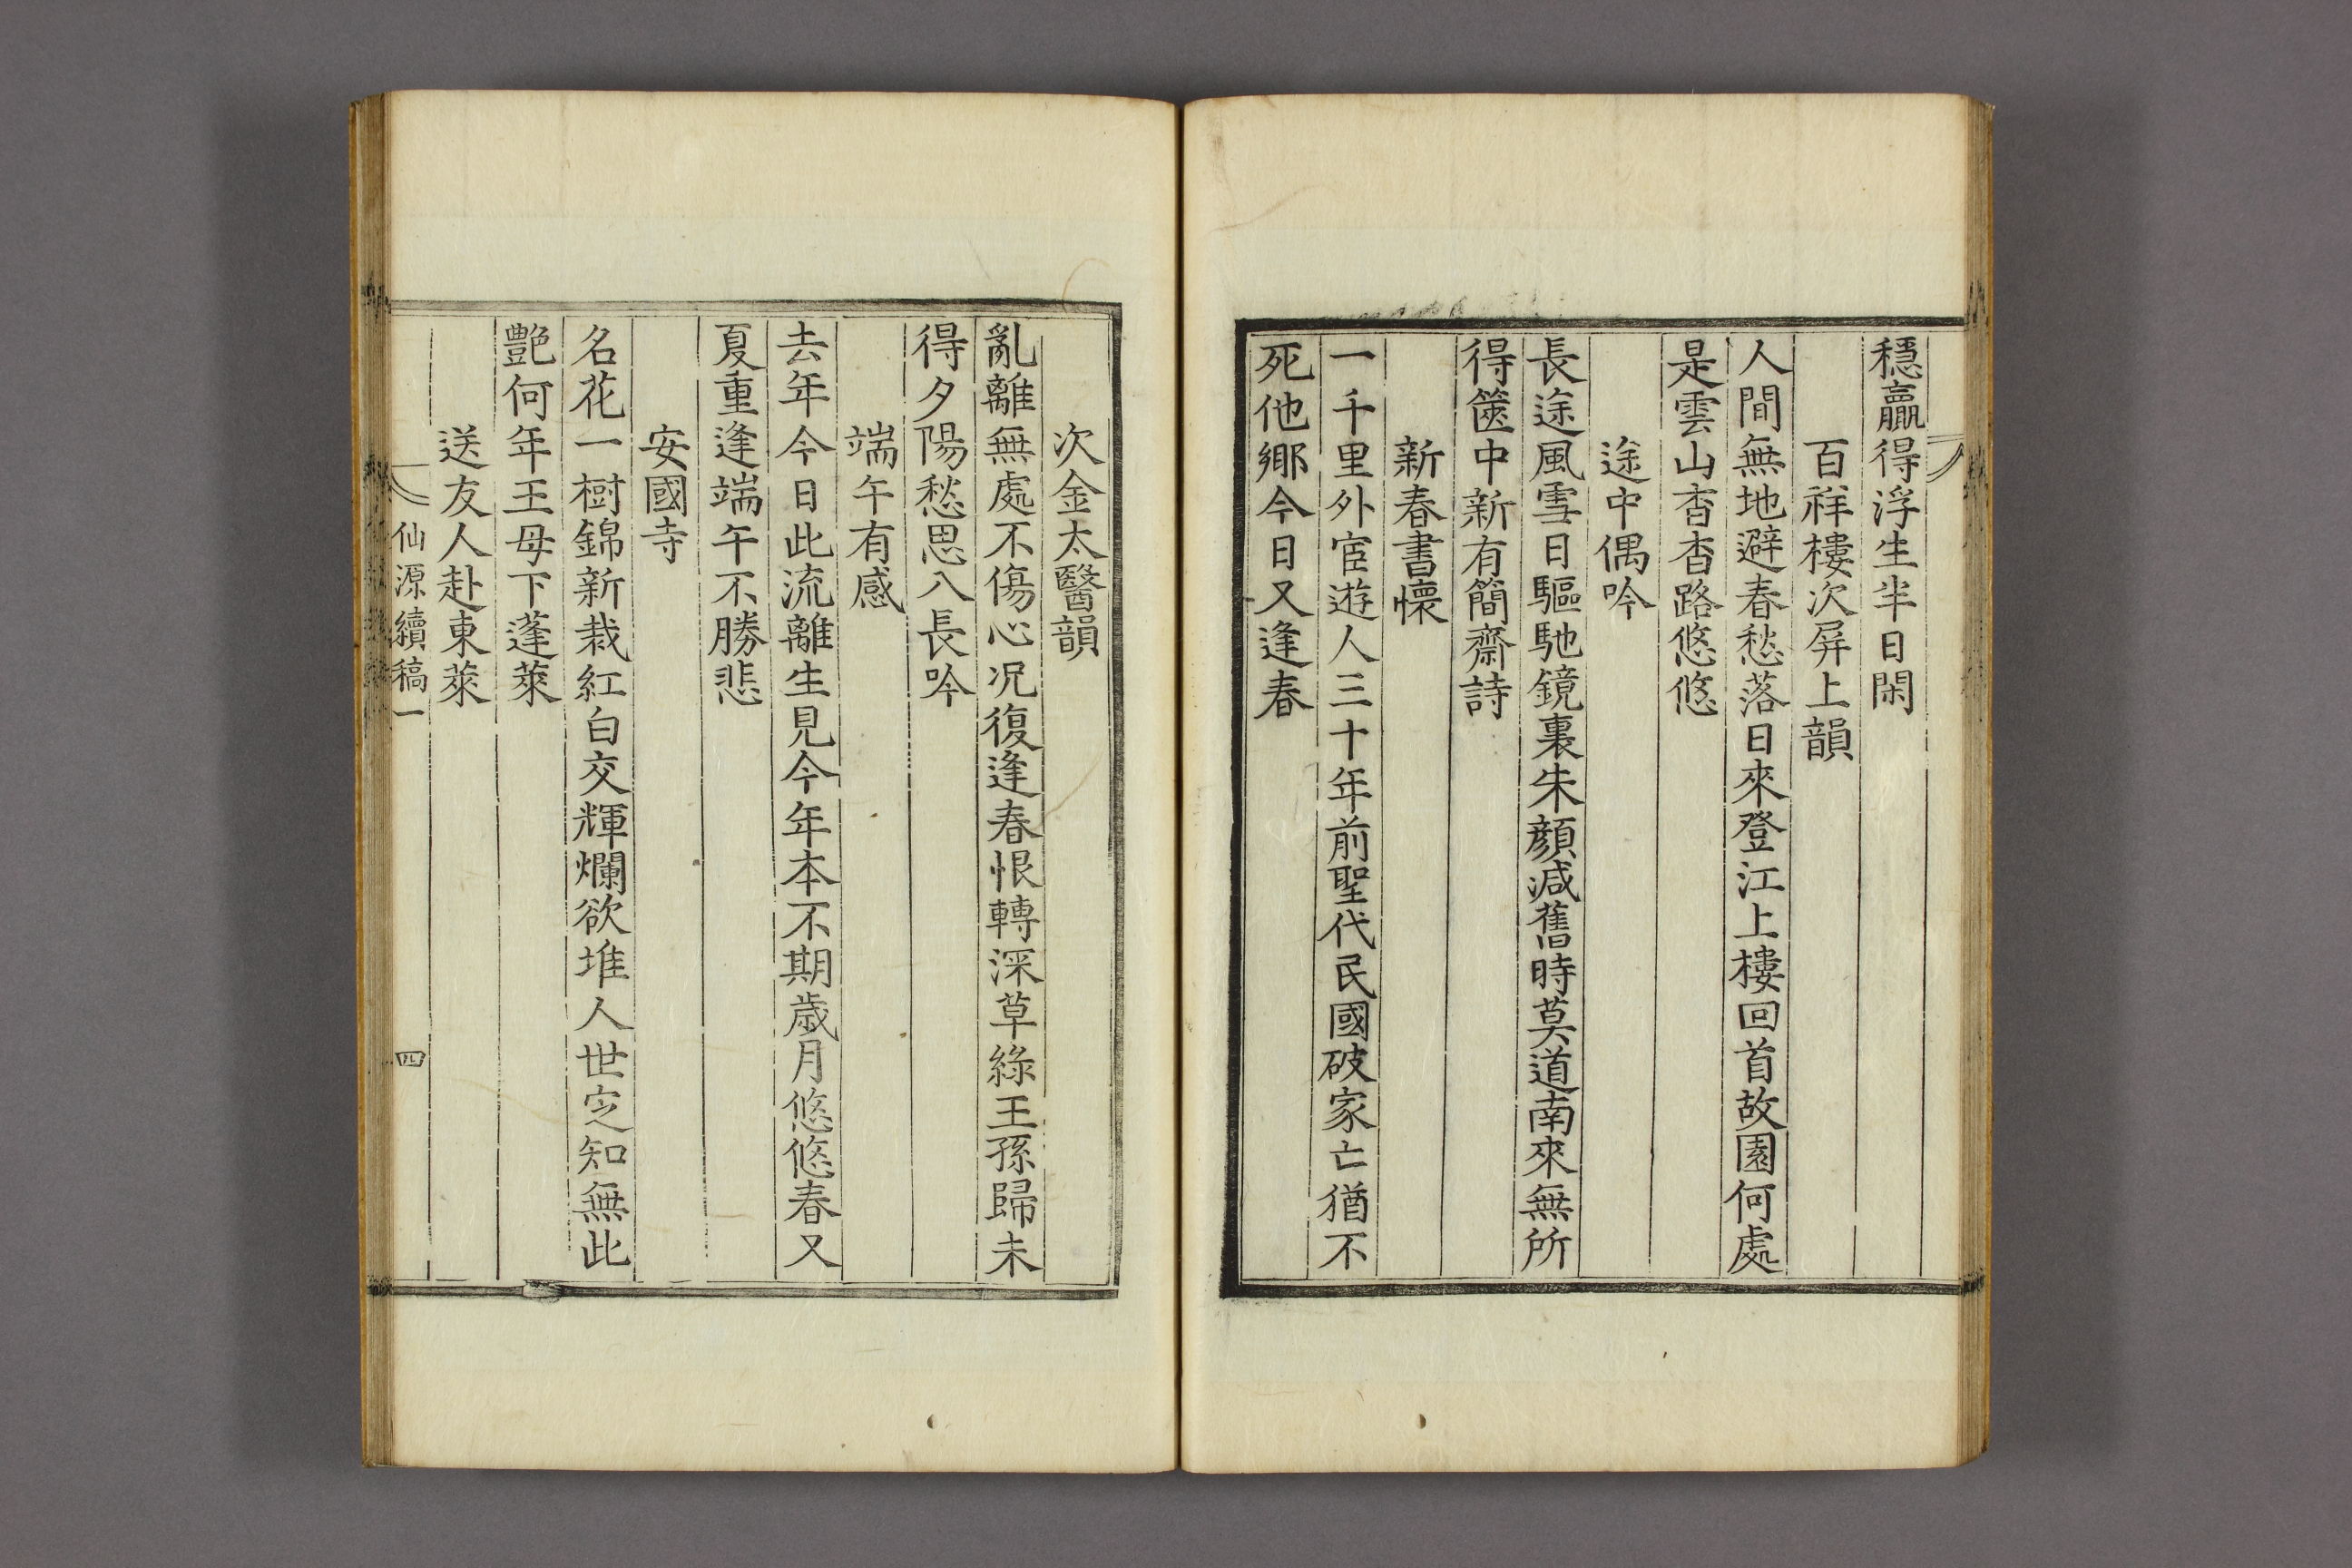 穩贏得浮生半日閑
百祥樓次屏上韻
人間無地避春愁落日來登江上樓回首故園何處
是雲山杳杳路悠悠
途中偶吟
長途風雪日驅馳鏡裏朱顏減舊時莫道南來無所
得篋中新有簡齋詩
新春書懷
一千里外宦遊人三十年前聖代民國破家亡猶不
死他鄉今日又逢春
次金太醫韻
亂離無處不傷心况復逢春恨轉深草綠王孫歸未
得夕陽愁思入長吟
端午有感
去年今日此流離生見今年本不期歲月悠悠春又
夏重逢端午不勝悲
安國寺
名花一樹錦新裁紅白交輝爛欲堆人世定知無此
艷何年王母下蓬萊
送友人赴東萊
仙源續稿一
四